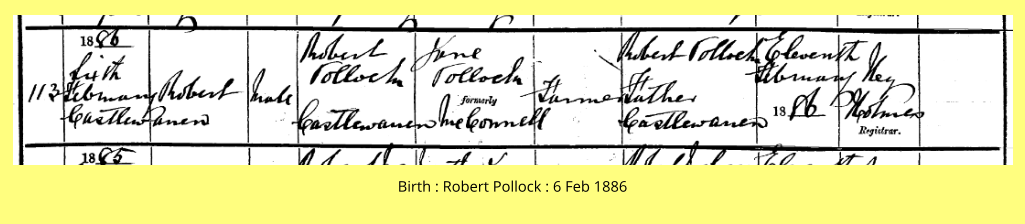 1886
sixth
113 February Robert Male
Castlewanen
Robert
Pollock
Castlewanen
Jane
Pollock
formerly
McConnell
Farmer
Robert Pollock
Father
Castlewanen
Eleventh
February
1886
Hy
Holmes
Registrar.
1885
Birth : Robert Pollock : 6 Feb 1886